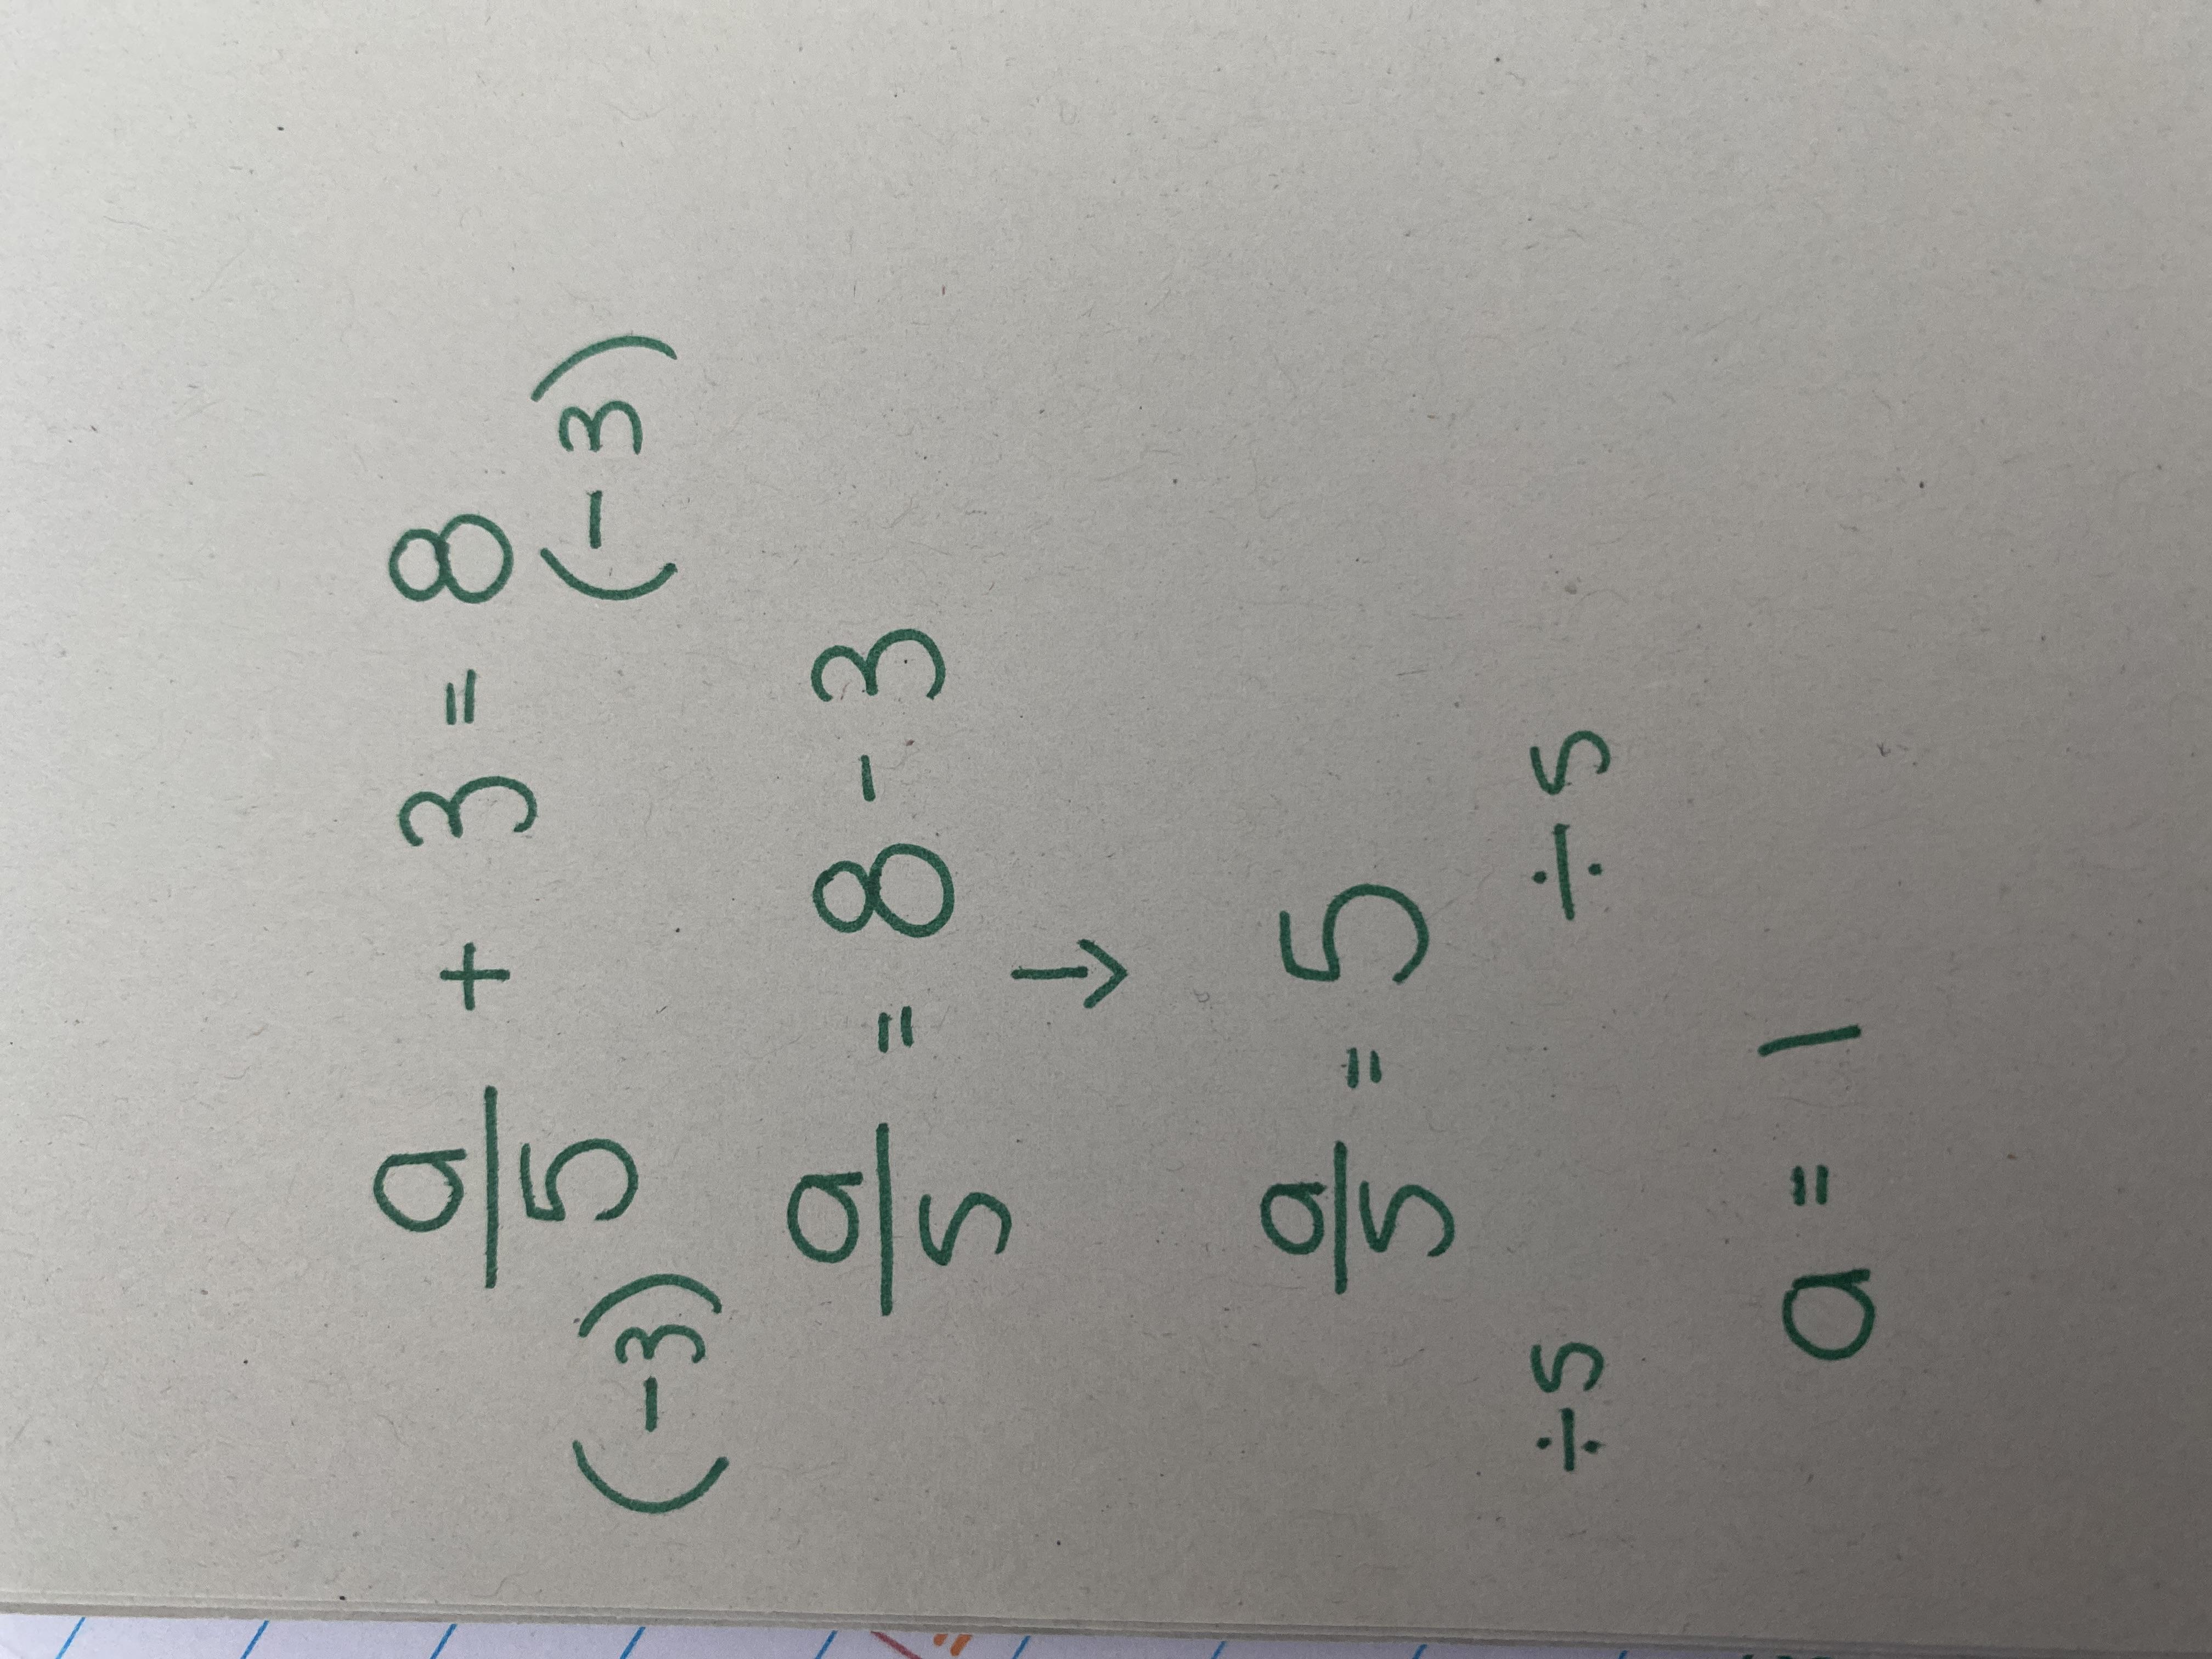 a/5 + 3 = 8
(-3) (-3)
a/5 = 8 - 3
↓
a/5 = 5
÷5 ÷5
a = 1